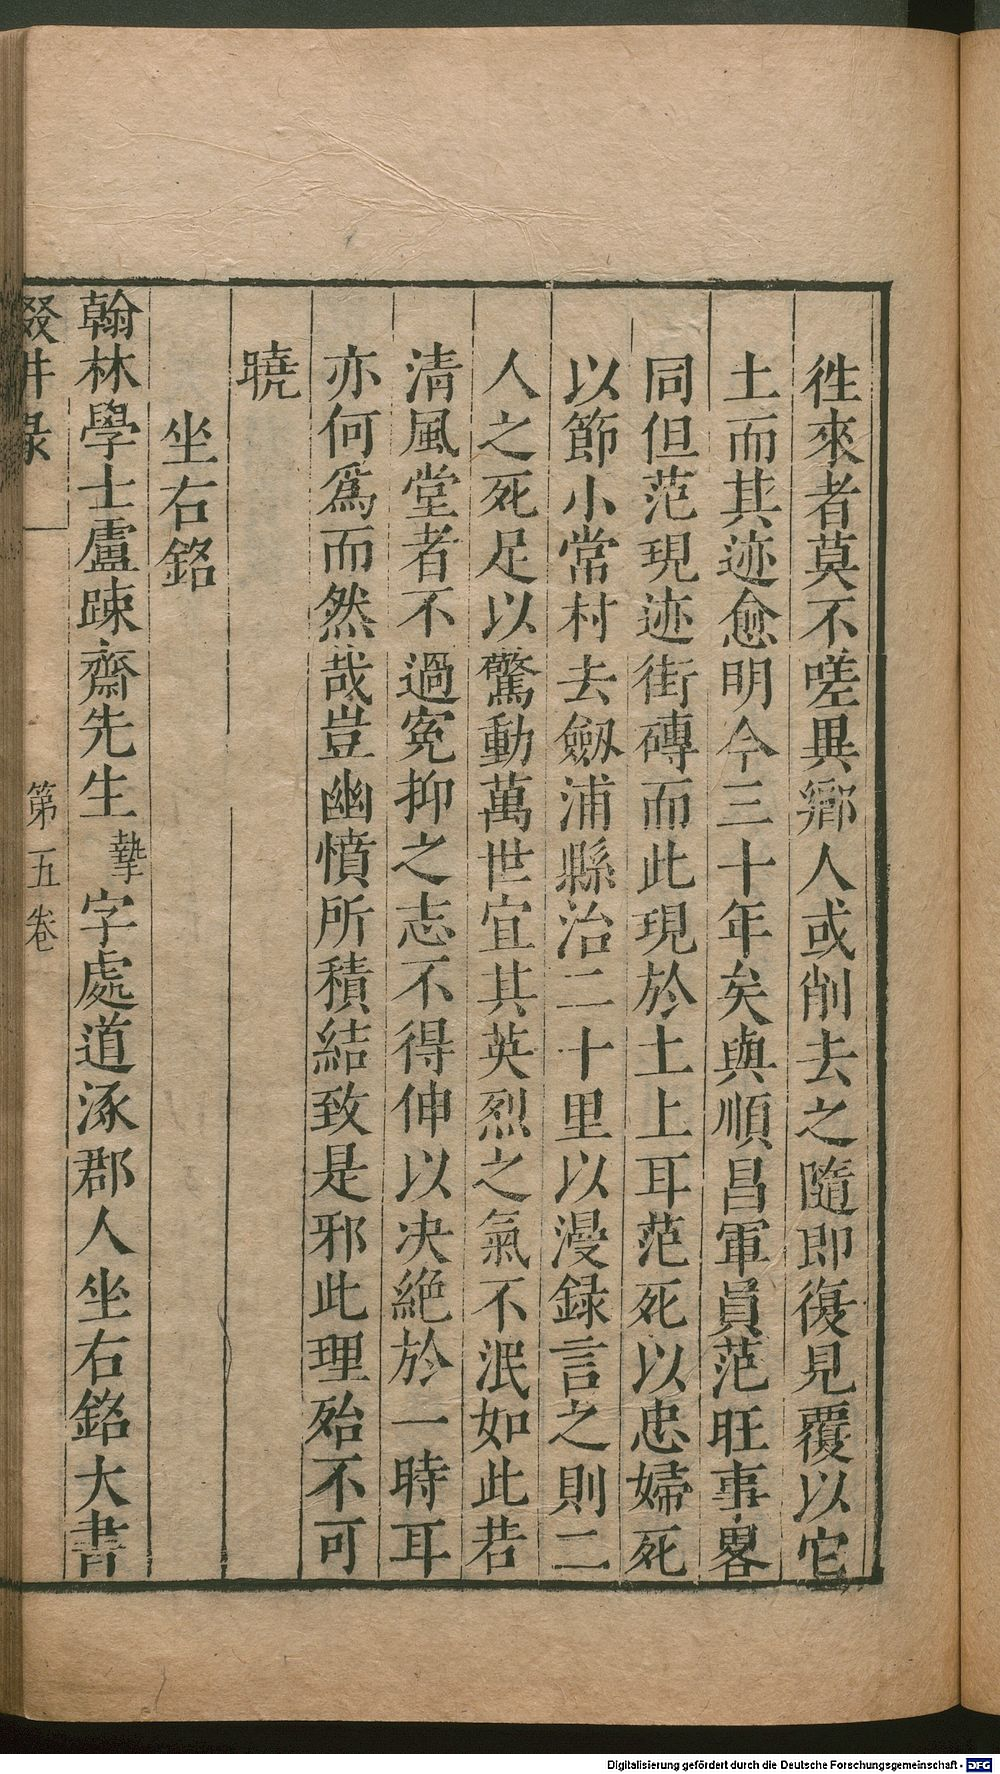 徃來者莫不嗟異鄉人或削去之隨即復見覆以它
土而其迹愈明今三十年矣與順昌軍員范旺事畧
同但范現迹街磚而此現於土上耳范死以忠婦死
以節小常村去劔浦縣治二十里以漫録言之則二
人之死足以驚動萬世宜其英烈之氣不泯如此若
清風堂者不過寃抑之志不得伸以决絶於一時耳
亦何爲而然哉豈幽憤所積結致是邪此理殆不可
曉
坐右銘
翰林學士盧踈齋先生摯字處道涿郡人坐右銘大書
輟畊录
第五卷
Digitalisierung gefördert durch die Deutsche Forschungsgemeinschaft - DFG